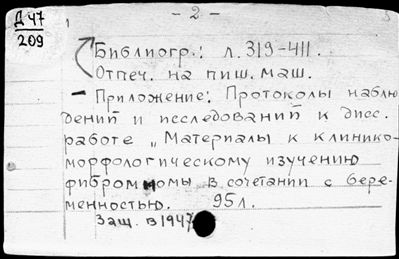 Д 47
209
- 2 -
Библиогр.: л. 319-411.
Отпеч. на пиш. маш.
- Приложение: Протоколы наблю
дений и исследований к дисс.
работе „Материалы к клинико-
морфологическому изучению
фибромиомы в сочетании с бере-
менностью. 95 л.
Защ. в 1947